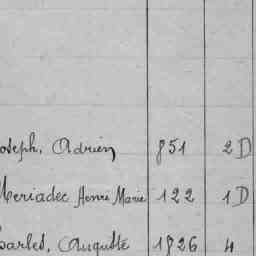 oseph, Adrien 851 2 D
Meriadec Henri Marie 122 1 D
harles, Auguste 1826 4